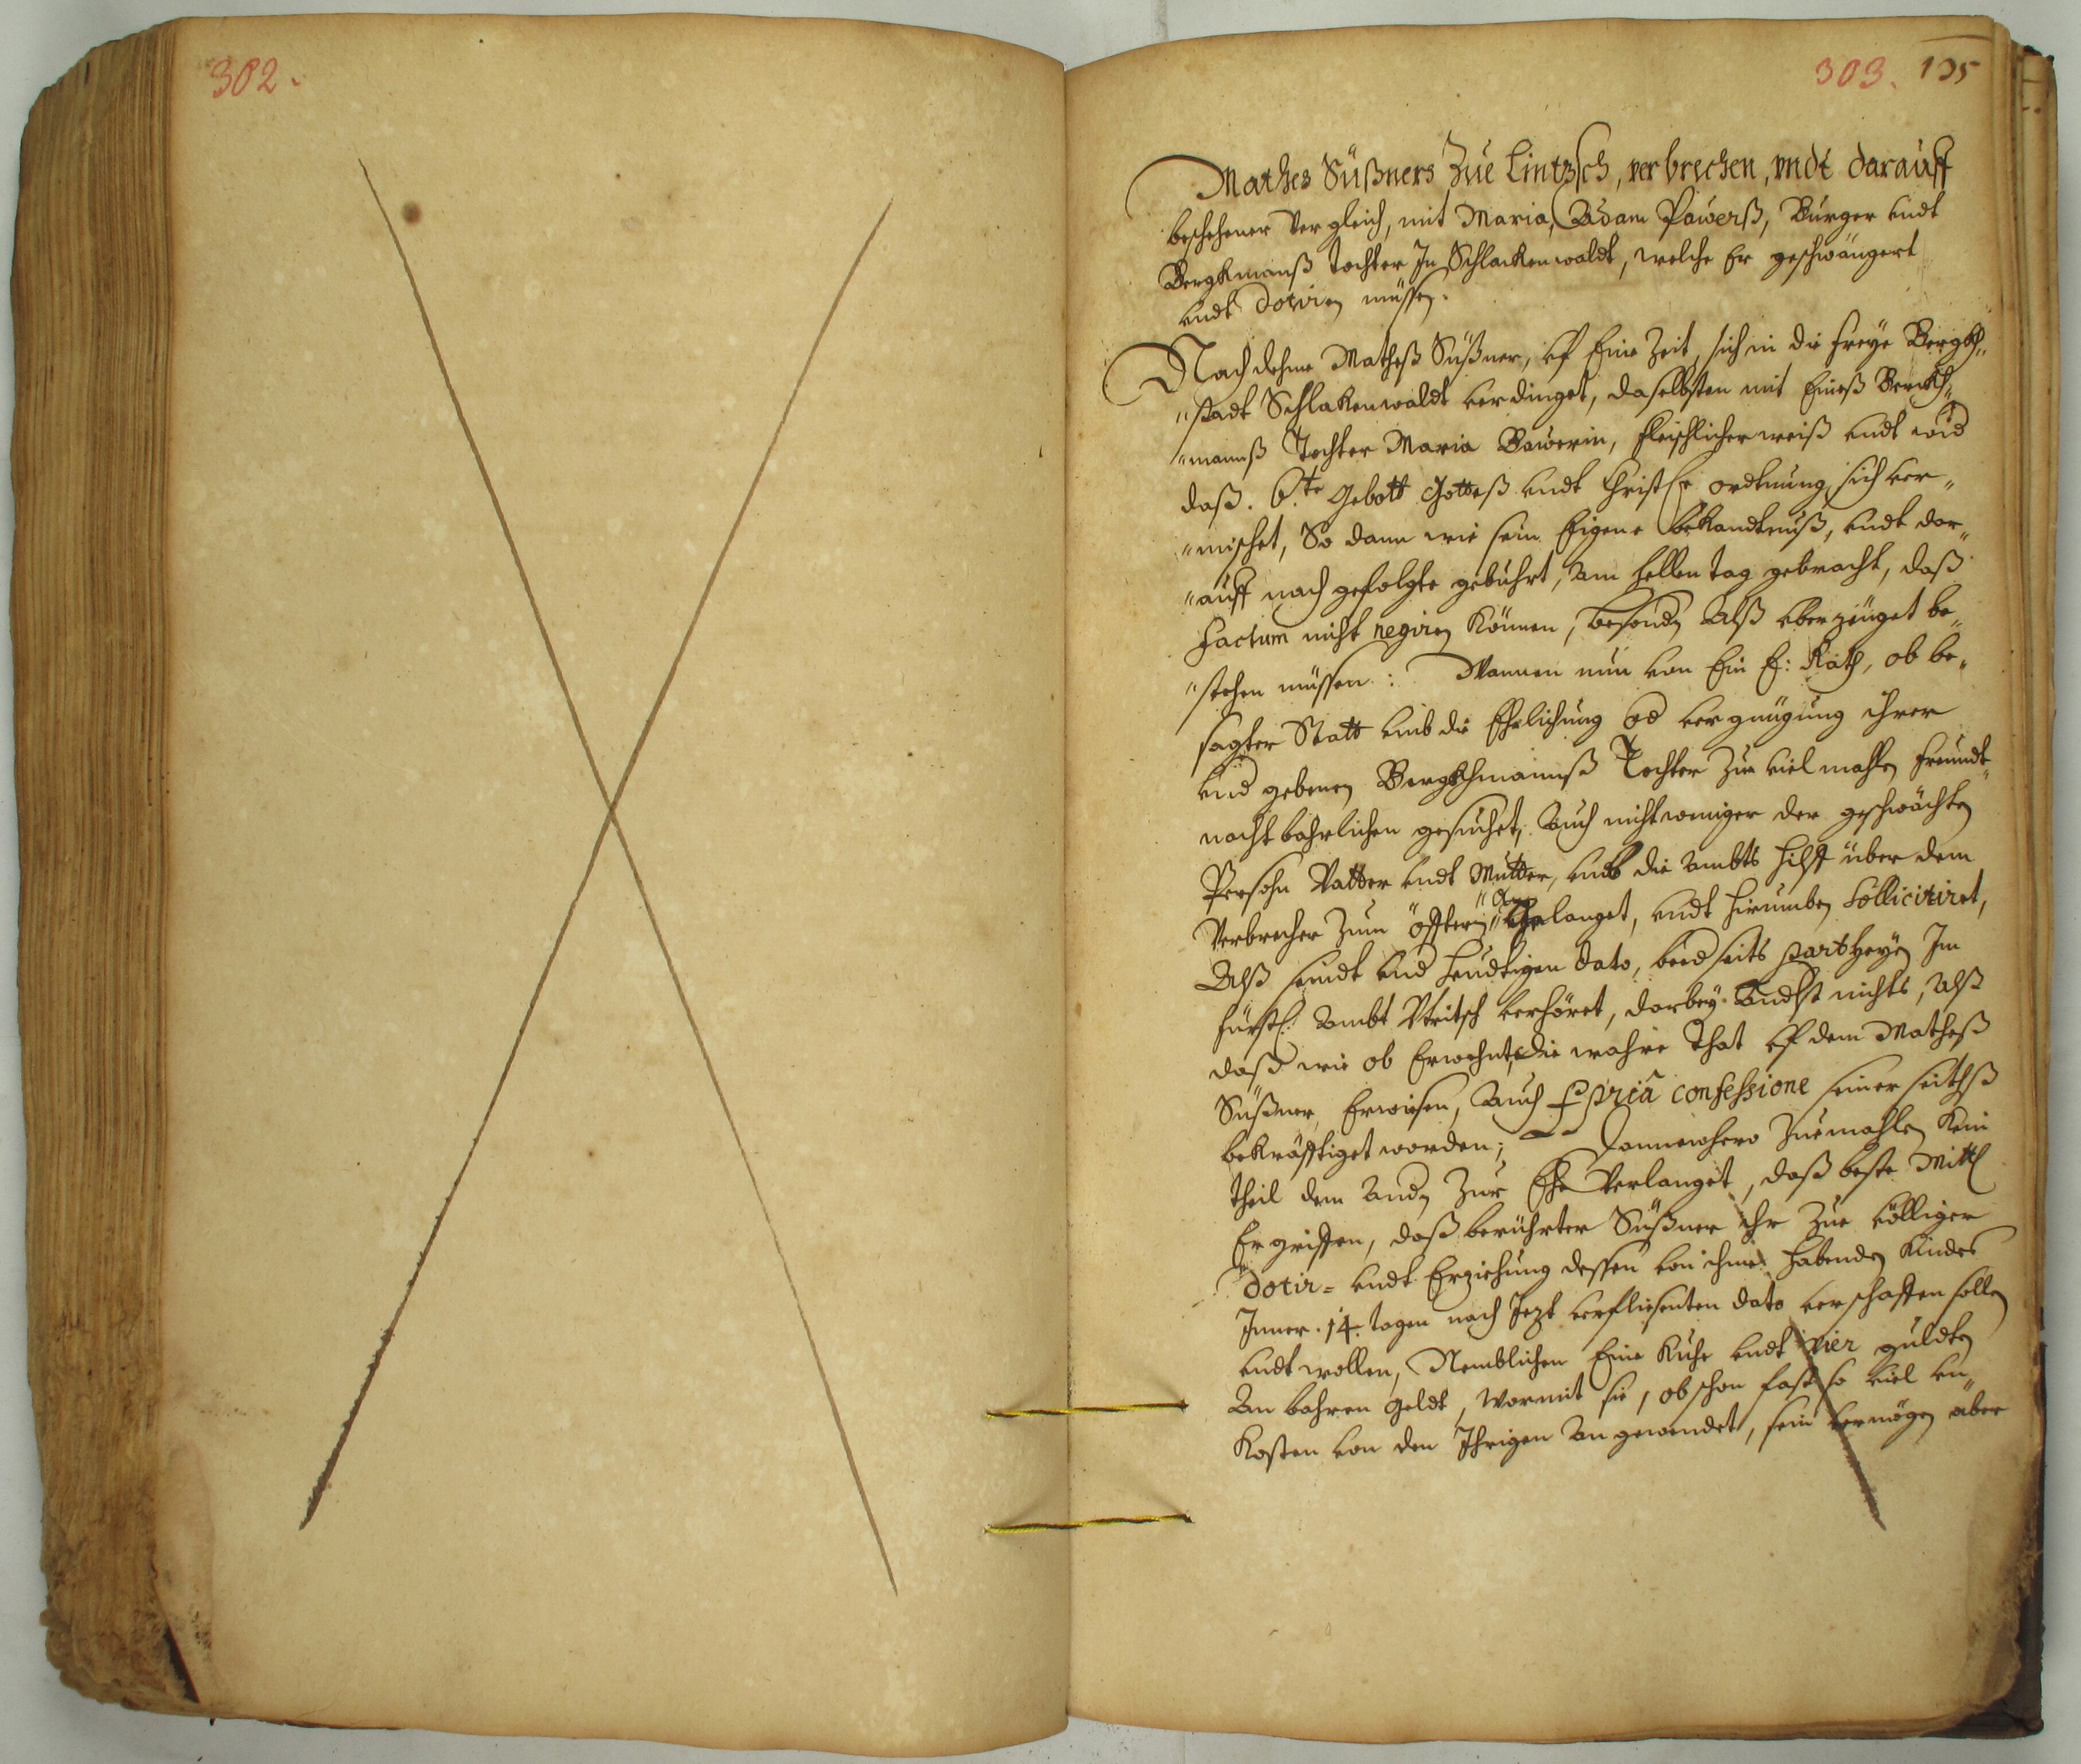 302.
303. 135
Mathes Süßners Zue Lintzsch, verbrechen, vndt darauff
beschehener Vergleich, mit Maria, Adam Pawerß, Burger vndt
Bergkmanß Tochter In Schlackenwaldt, welche Er geschwängert
vndt dotiren müssen.
Nach dehme Matheß Süßner, vf Eine Zeit, sich in die freÿe Bergkh„
„stadt Schlakenwaldt verdinget, daselbsten mit Eineß Berckh„
„mannß Tochter Maria Bawerin, fleischlicher weiß vndt wid
daß. 6.te Gebott Gotteß vndt Christl. ordtnung, sich ver„
„mischet, So dann wie sein Eigene bekandtnuß, vndt dar„
„auff nach gefolgte gebuhrt, am hellen tag gebracht, daß
Factum nicht negiren können, besondern Alß vberzeüget be„
„stehen müssen: Wannen nun von Ein E: Rath, ob be„
sagter Statt vmb die Ehelichung od vergnügung ihrer
vndgebenen Bergkhmannß Tochter Zue viel mahlen freundt„
nachtbahrlichen gesuchet, Auch nicht weniger der geschwächten
Persohn Vatter vndt Mutter, vmb die Ambts hilff über dem
Verbrecher Zum öfftern „an„ gelanget, vndt hirumben Sölliciriret,
Alß seindt vnd heudtigen dato, beedseits partheÿen Im
fürstl: Ambt verhöret, darbeÿ Andst nichts, Alß
daß wie ob Erwehnt, die wahre That vf dem Matheß
Süßner Erwiesen, Auch ppriâ confessione seiner seithß
bekräfftiget worden; Dannenhero Zuemahlen Kein
theil dem Andn Zur Ehe Verlanget, daß beste Mittl
Ergriffen, daß berührter Süßner ihr Zue völliger
Dotir= vndt Erziehung dessen von ihme habenden Kindes
Inner. 14. tagen nach Jezt verfliesenten dato verschaffen sollen
vndt wollen, Nemblichen Eine Kuhe vndt vier guldten
An bahren geldt, Wormit sie, obschon fast so viel vn„
Kosten von den Ihrigen An gewendet, sein vermögen aber